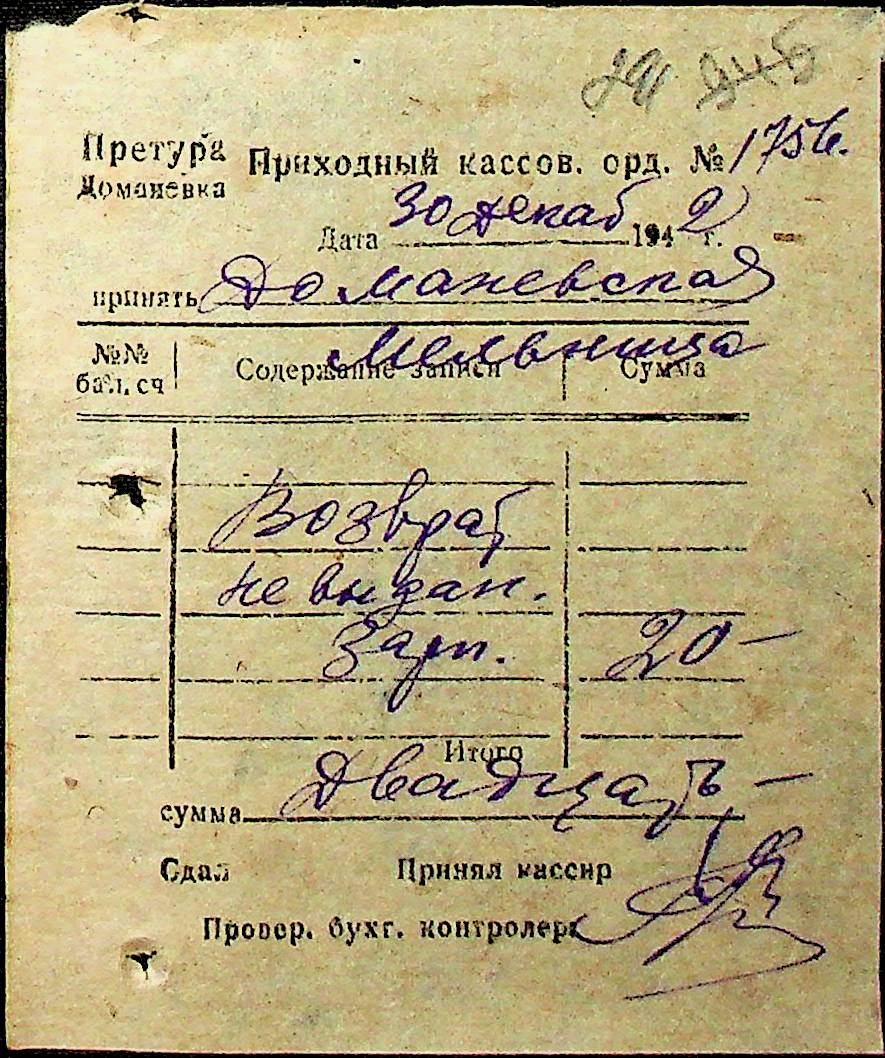 Претура Приходный кассов. орд. № 1756.
Доманевка
Дата 30 декаб 1942 г.
принять Доманевская
Мельница
№№ бал. сч Содержание записи Сумма
Возврат
не выдан.
Зарп. 20 —
Итого
сумма Двадцать —
Сдал Принял кассир
Провер. бухг. контролер